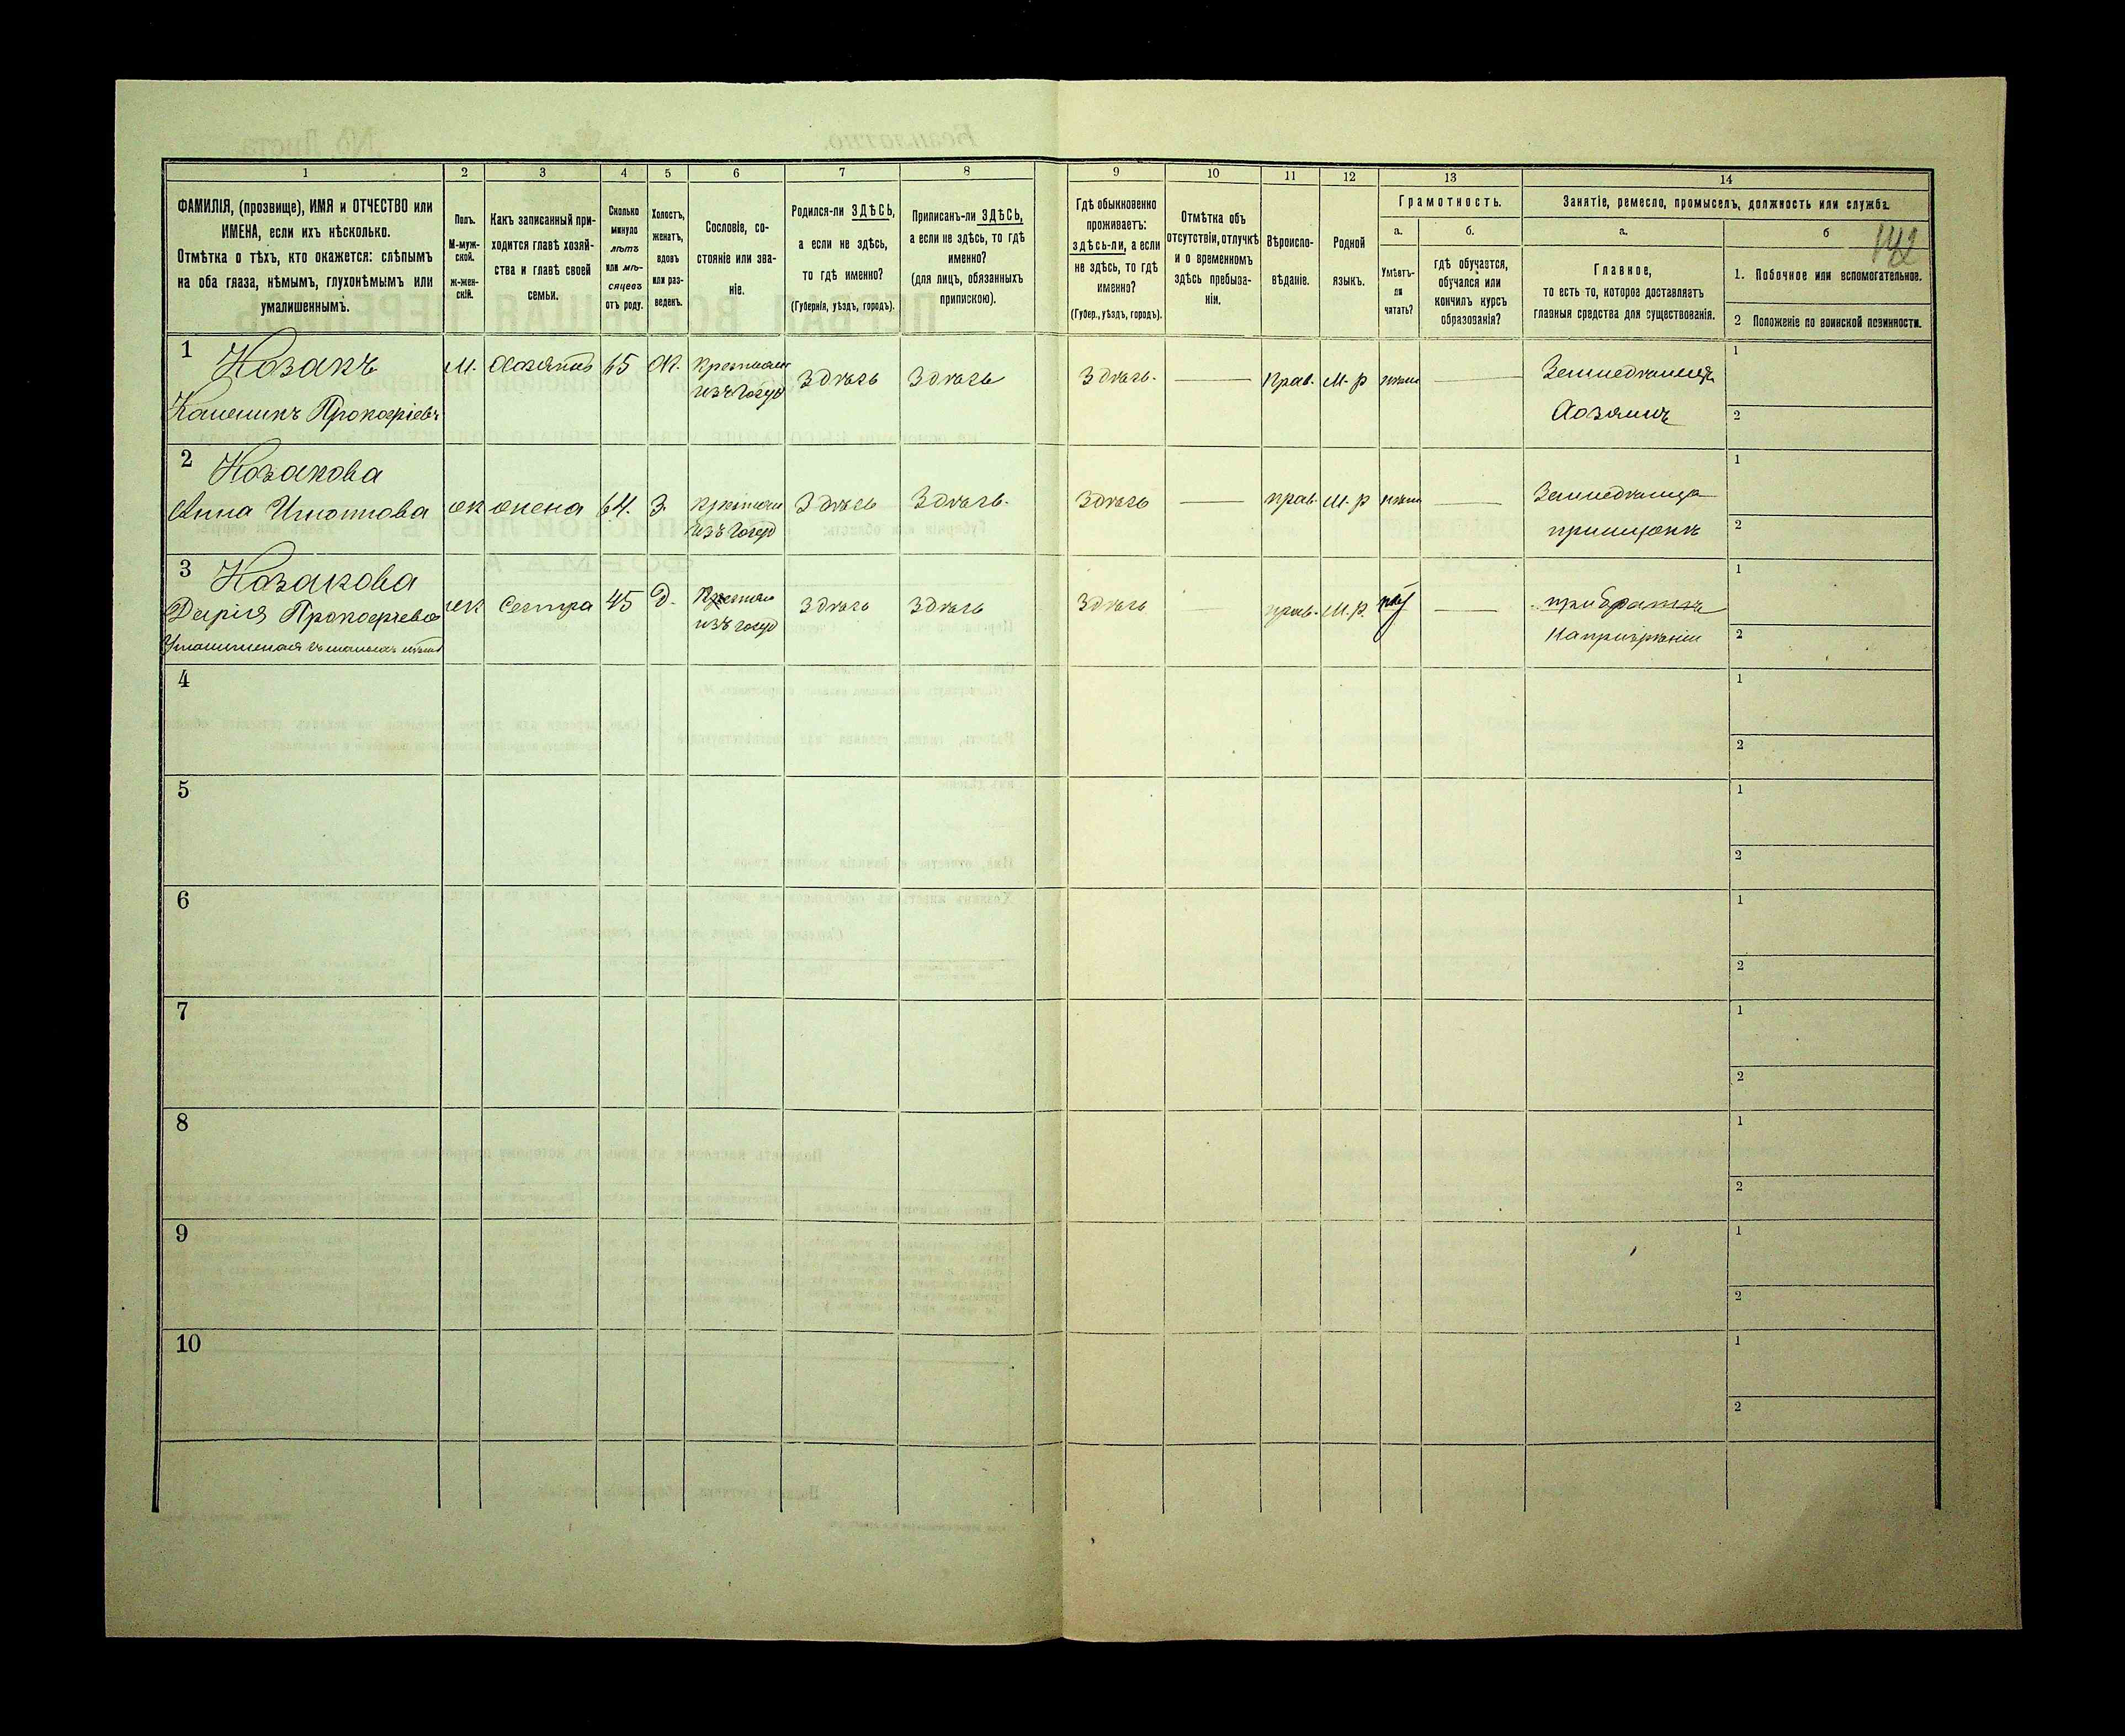 1 2 3 4 5 6 7 8 9 10 11 12 13 14
ФАМИЛІЯ, (прозвище), ИМЯ и ОТЧЕСТВО или
ИМЕНА, если ихъ нѣсколько.
Отмѣтка о тѣхъ, кто окажется: слѣпымъ
на оба глаза, нѣмымъ, глухонѣмымъ или
умалишеннымъ.
Полъ.
М-муж-
ской.
ж-жен-
скій.
Какъ записанный при-
ходится главѣ хозяй-
ства и главѣ своей
семьи.
Сколько
минуло
лѣтъ
или мѣ-
сяцевъ
отъ роду.
Холостъ,
женатъ,
вдовъ
или раз-
веденъ.
Сословіе, со-
стояніе или зва-
ніе.
Родился-ли ЗДѢСЬ,
а если не здѣсь,
то гдѣ именно?
(Губернія, уѣздъ, городъ).
Приписанъ-ли ЗДѢСЬ,
а если не здѣсь, то гдѣ
именно?
(для лицъ, обязанныхъ
припискою).
Гдѣ обыкновенно
проживаетъ:
здѣсь-ли, а если
не здѣсь, то гдѣ
именно?
(Губер., уѣздъ, городъ).
Отмѣтка объ
отсутствіи, отлучкѣ
и о временномъ
здѣсь пребыва-
ніи.
Вѣроиспо-
вѣданіе.
Родной
языкъ.
Грамотность.
а.
Умѣетъ-
ли
читать?
б.
гдѣ обучается,
обучался или
кончилъ курсъ
образованія?
Занятіе, ремесло, промыселъ, должность или служба.
а.
Главное,
то есть то, которое доставляетъ
главныя средства для существованія.
б
1. Побочное или вспомогательное.
2 Положеніе по воинской повинности.
1 Козакъ
Прокофіевъ
м. 65 Ж.
изъ госуд
здѣсь здѣсь здѣсь. прав. м-р
Хозяинъ
1
2
2 Козакова
Анна
ж жена 64. З.
изъ госуд
здѣсь здѣсь. здѣсь прав. м-р
1
2
3 Козакова
Дарія Прокофіева
ж Сестра 45 Д.
изъ госуд
здѣсь здѣсь здѣсь прав. м.р.
при братѣ
1
2
4 1
2
5 1
2
6 1
2
7 1
2
8 1
2
9 1
2
10 1
2